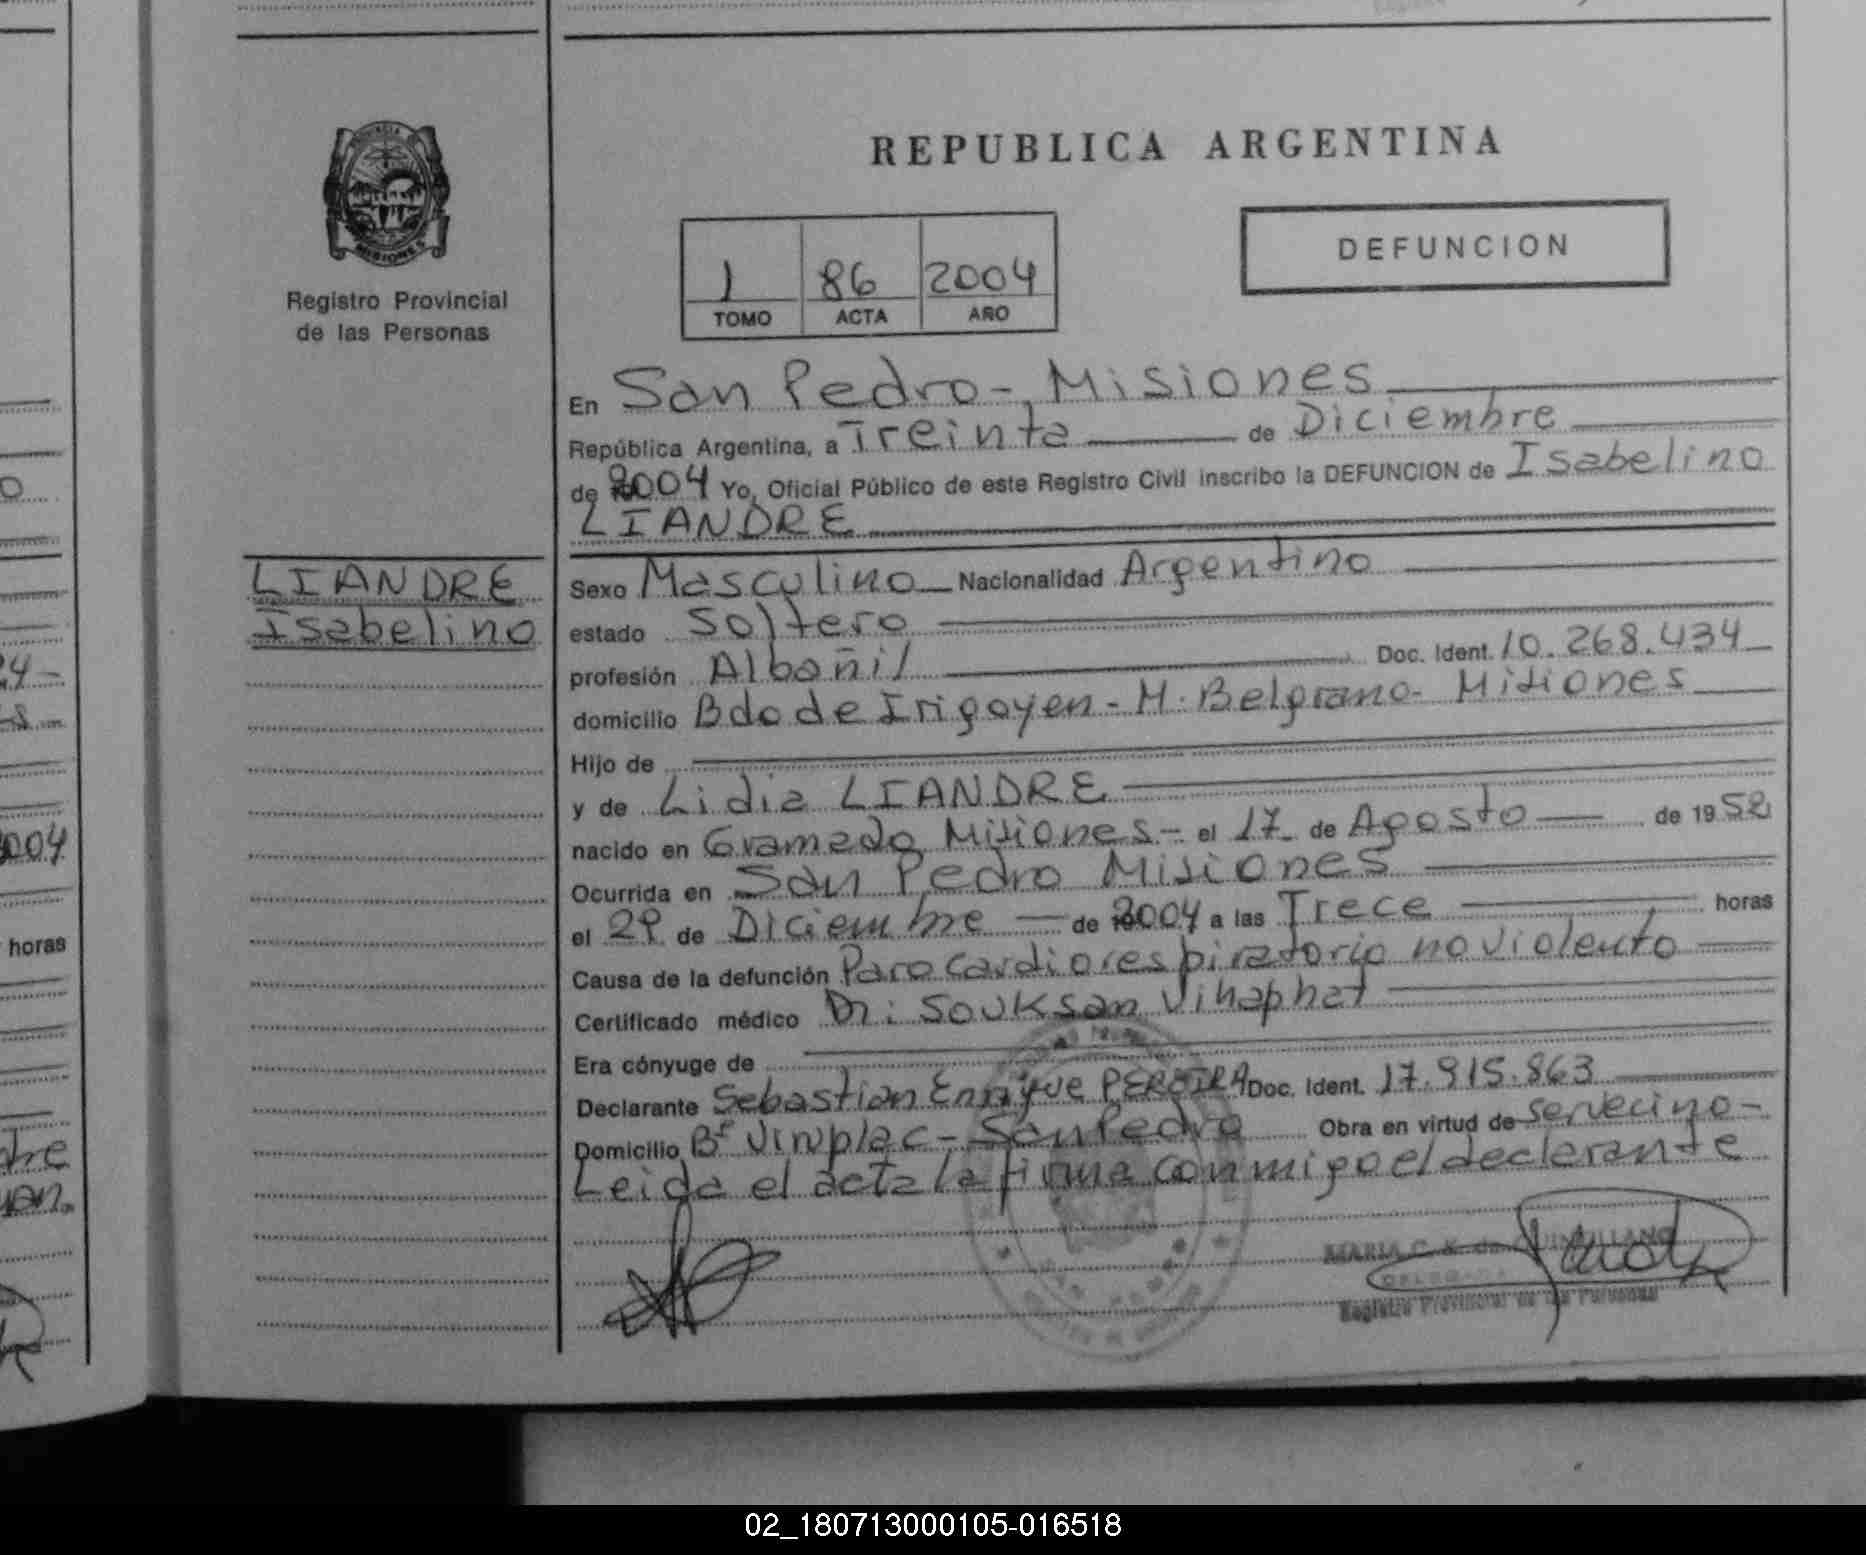 REPUBLICA ARGENTINA
MISIONES
Registro Provincial
de las Personas
1 86 2004
TOMO ACTA AÑO
DEFUNCION
En San Pedro - Misiones
República Argentina, a Treinta de Diciembre
de 2004 Yo, Oficial Público de este Registro Civil inscribo la DEFUNCION de Isabelino
LIANDRE
LIANDRE
Isabelino
Sexo Masculino Nacionalidad Argentino
estado Soltero
profesión Albañil Doc. Ident. 10.268.434
domicilio Bdo de Irigoyen - M. Belgrano - Misiones
Hijo de
y de Lidia LIANDRE
nacido en Gramado Misiones - el 17 de Agosto de 1952
Ocurrida en San Pedro Misiones
el 29 de Diciembre de 2004 a las Trece horas
Causa de la defunción Paro cardiorespiratorio no violento
Certificado médico Dr: Souksan Vihaphat
Era cónyuge de
Declarante Sebastian Enrique PEREIRA Doc. Ident. 17.915.863
Domicilio Bº Viruplac - San Pedro Obra en virtud de ser vecino -
Leida el acta la firma conmigo el declarante
MARIA C. K. de
DELEGADA
Registro Provincial de las Personas
2004
horas
02_180713000105-016518